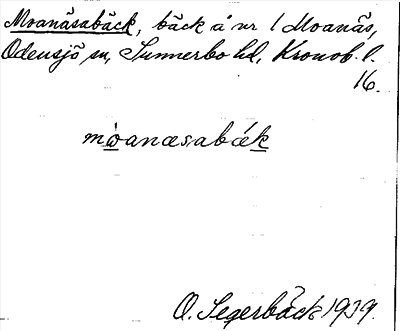 Moanäsabäck, bäck å nr 1 Moanäs,
Odensjö sn, Sunnerbo hd, Kronob. l.
16.
mòanasabák
O. Segerbäck 1939.